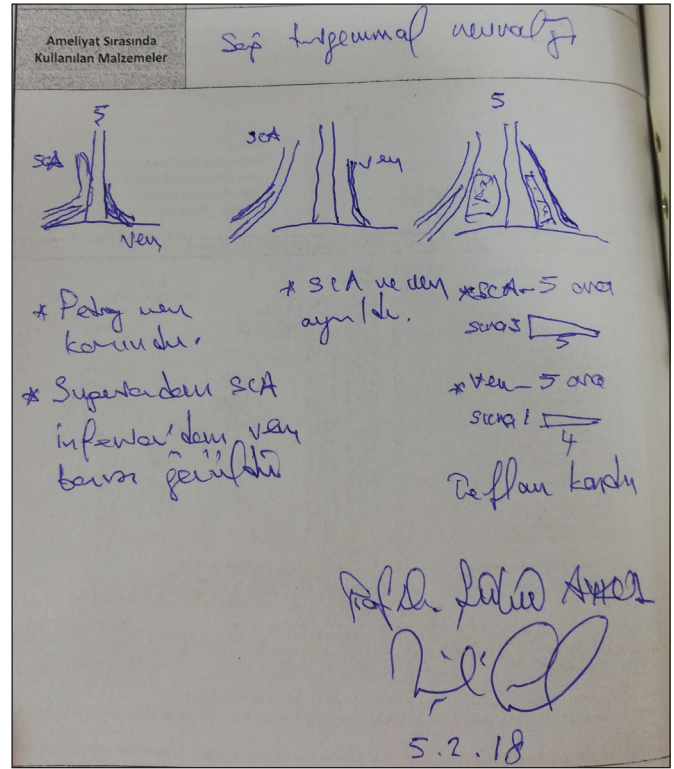 Ameliyat Sırasında
Kullanılan Malzemeler
Sağ trigeminal nevralji
5
SCA
ven
SCA
ven
5
* Petroz ven
korundu.
* Superiordan SCA
inferior'dan ven
görüldü
* SCA ve ven
ayrıldı.
* SCA - 5 arası
5
* Ven - 5 arası
4
Teflan kondu
Prof Dr.
5.2.18